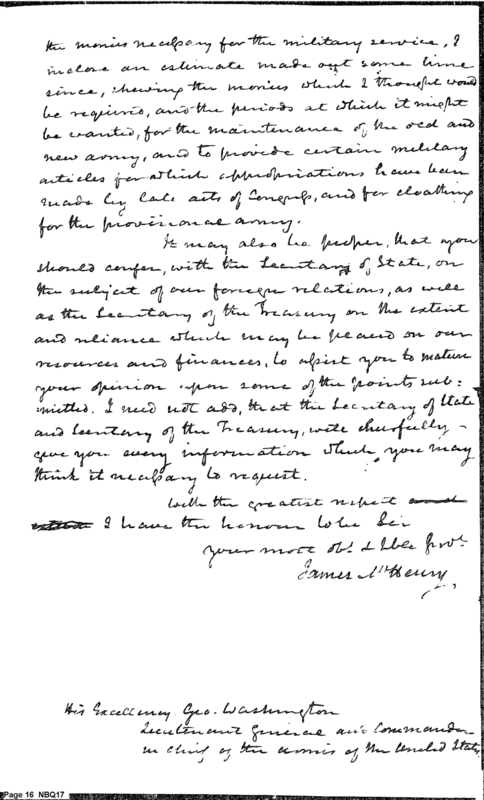 the monies necessary for the military service, I
inclose an estimate made out some time
since, shewing the monies which I thought would
be required, and the periods at which it might
be wanted, for the maintenance of the old and
new army, and to provide certain military
articles for which appropriations have been
made by late acts of Congress, and for cloathing
for the provisional army.
It may also be proper, that you
should confer, with the Secretary of State, on
the subject of our foreign relations, as well
as the Secretary of the Treasury on the extent
and reliance which may be placed on our
resources and finances, to assist you to mature
your opinion upon some of the points sub=
mitted. I need not add, that the Secretary of State
and Secretary of the Treasury, will chearfully
give you every information which you may
think it necessary to request.
With the greatest respect and
I have the honour to be Sir
your most obt. & hble
James McHenry
His Excellency Geo. Washington
Lieutenant General and Commander
in chief of the armies of the United States
Page 16 NBQ17